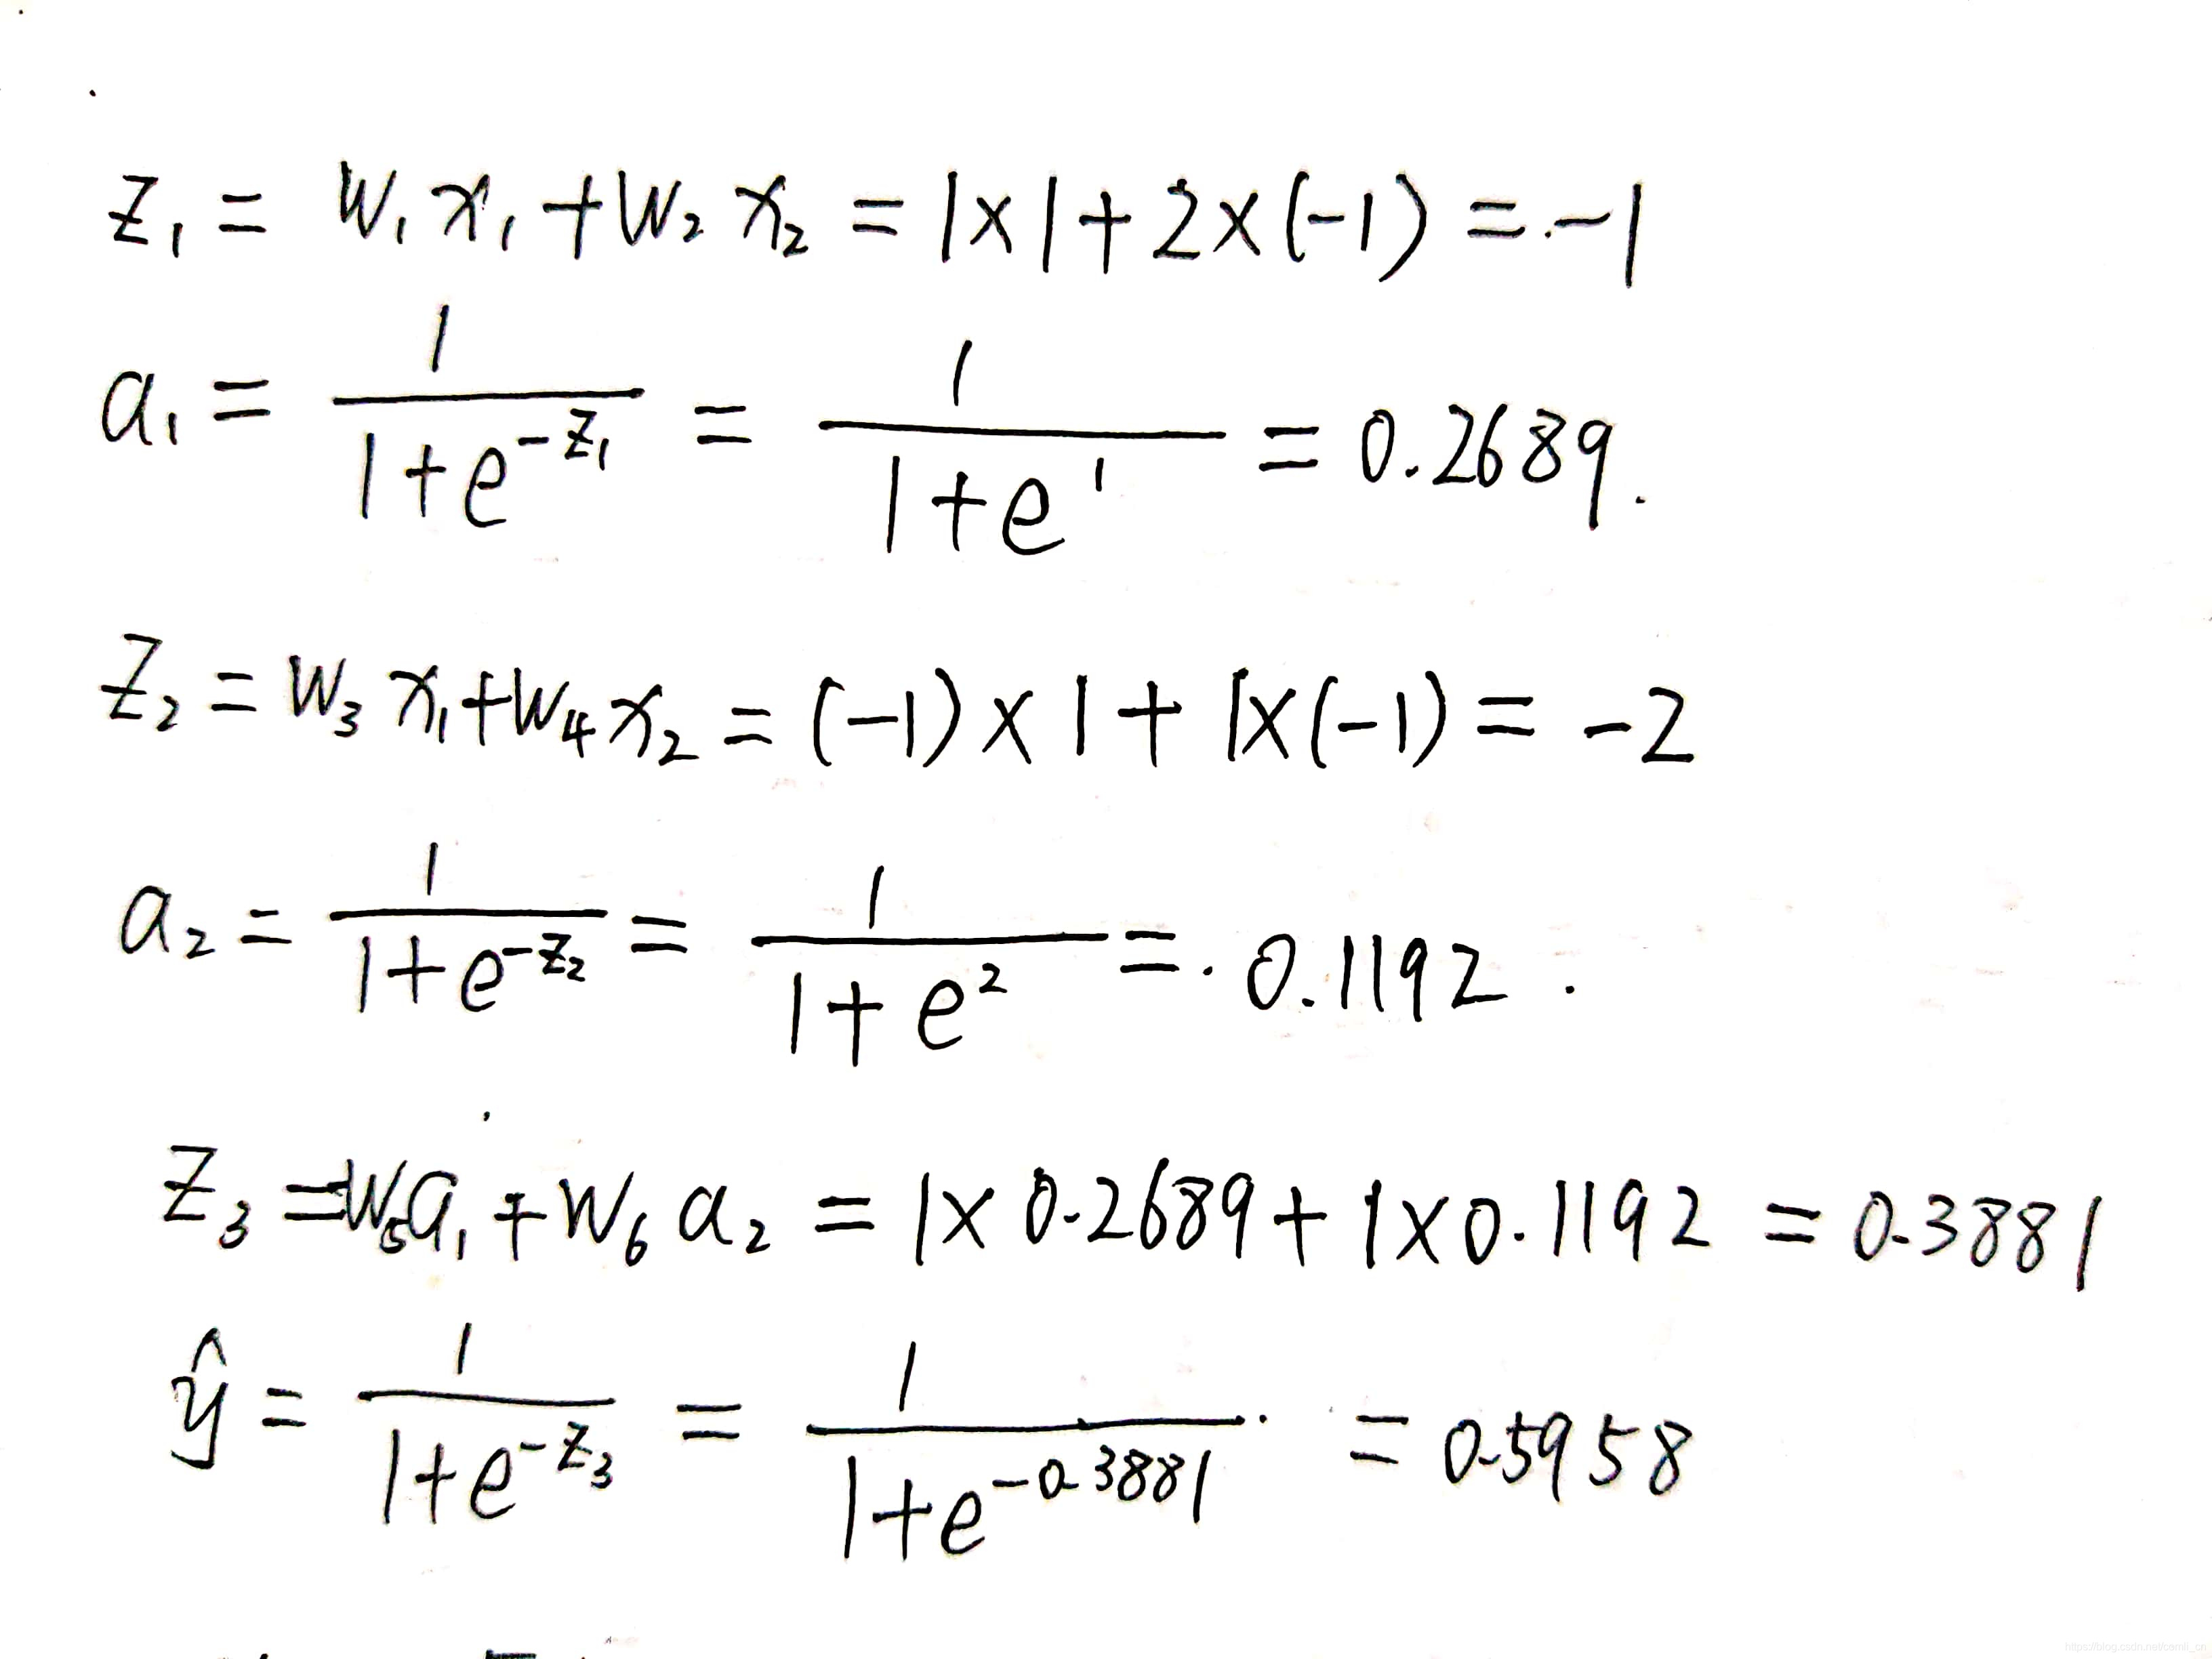 z₁ = w₁x₁ + w₂x₂ = 1×1 + 2×(-1) = -1
a₁ = 1/(1+e^(-z₁)) = 1/(1+e^1) = 0.2689.
z₂ = w₃x₁ + w₄x₂ = (-1)×1 + 1×(-1) = -2
a₂ = 1/(1+e^(-z₂)) = 1/(1+e^2) = 0.1192.
z₃ = w₅a₁ + w₆a₂ = 1×0.2689 + 1×0.1192 = 0.3881
ŷ = 1/(1+e^(-z₃)) = 1/(1+e^(-0.3881)) = 0.5958